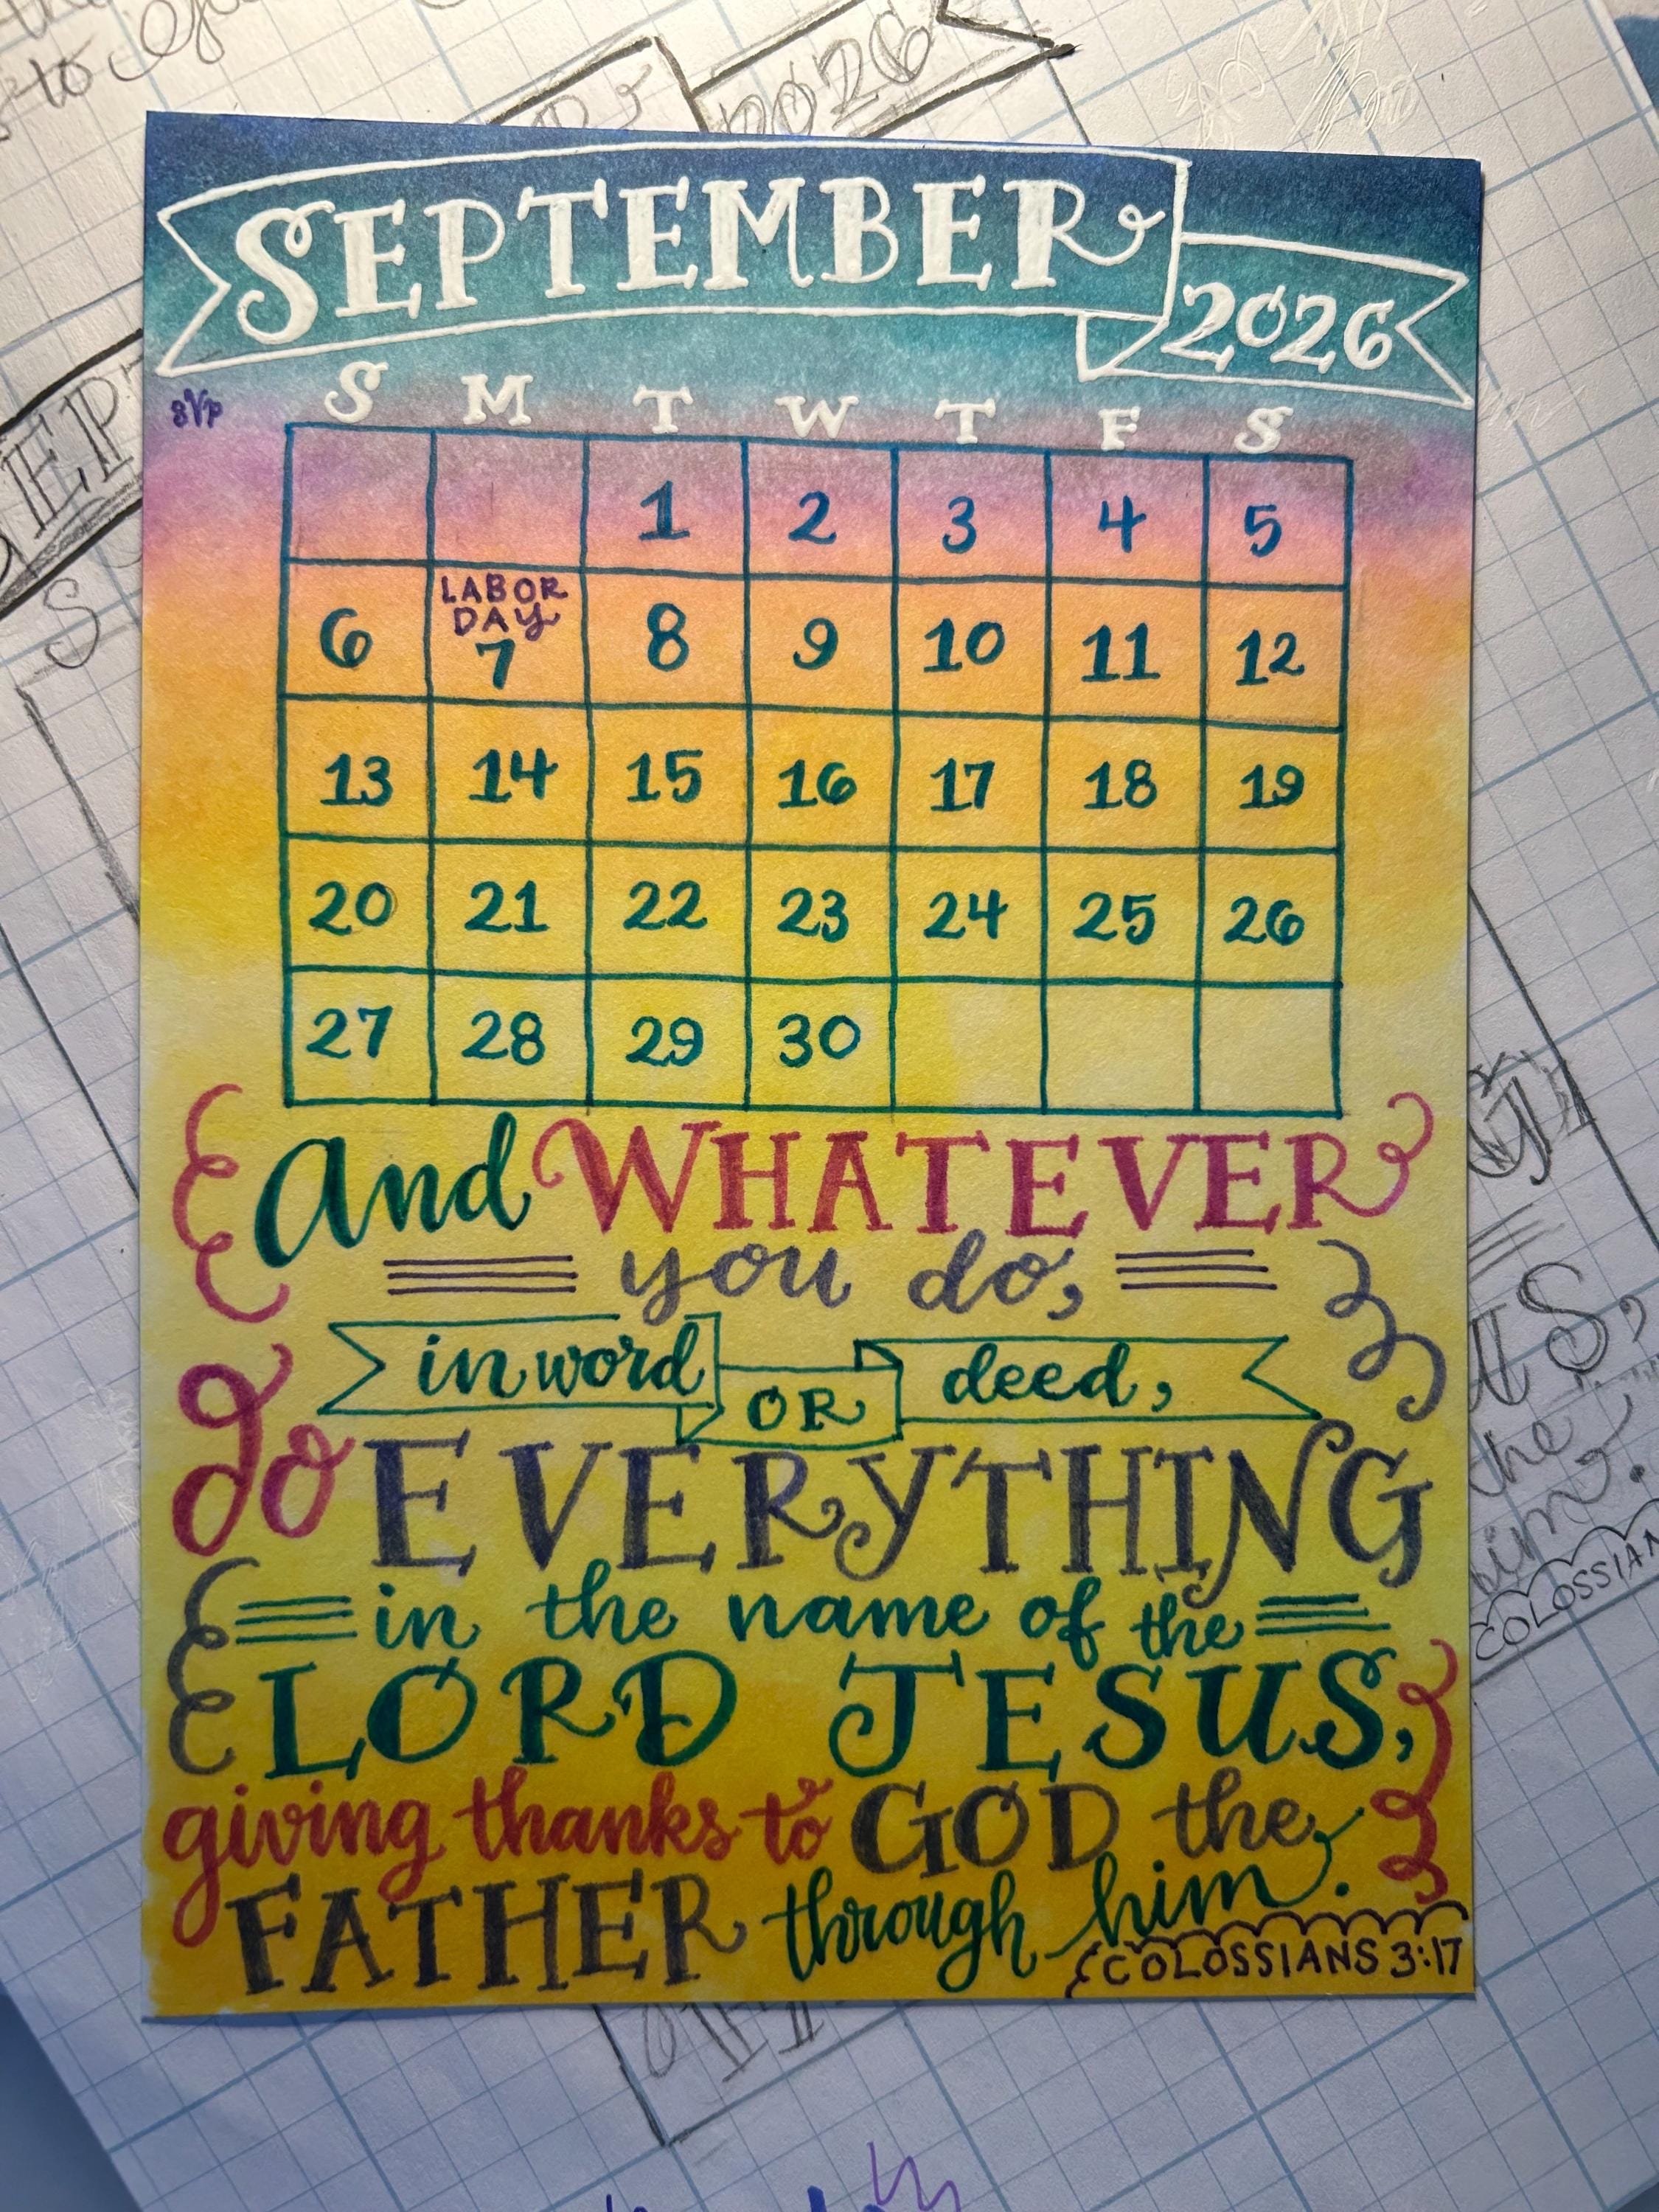 to
2026
SEPTEMBER
2026
SVP
S M T W T F S
1 2 3 4 5
LABOR
DAY
6 7 8 9 10 11 12
13 14 15 16 17 18 19
20 21 22 23 24 25 26
27 28 29 30
and WHATEVER
you do,
in word OR deed,
do EVERYTHING
in the name of the
LORD JESUS,
giving thanks to GOD the
FATHER through him.
COLOSSIANS 3:17
EPT
S
the
him.
COLOSSIAN